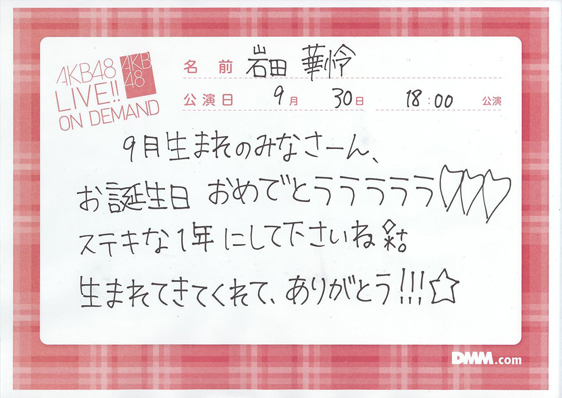 AKB48
LIVE!!
ON DEMAND
AKB
48
名前 岩田 華怜
公演日 9月 30日 18:00 公演
9月生まれのみなさーん、
お誕生日 おめでとうううううう♡♡♡
ステキな1年にして下さいね
生まれてきてくれて、ありがとう!!!☆
DMM.com